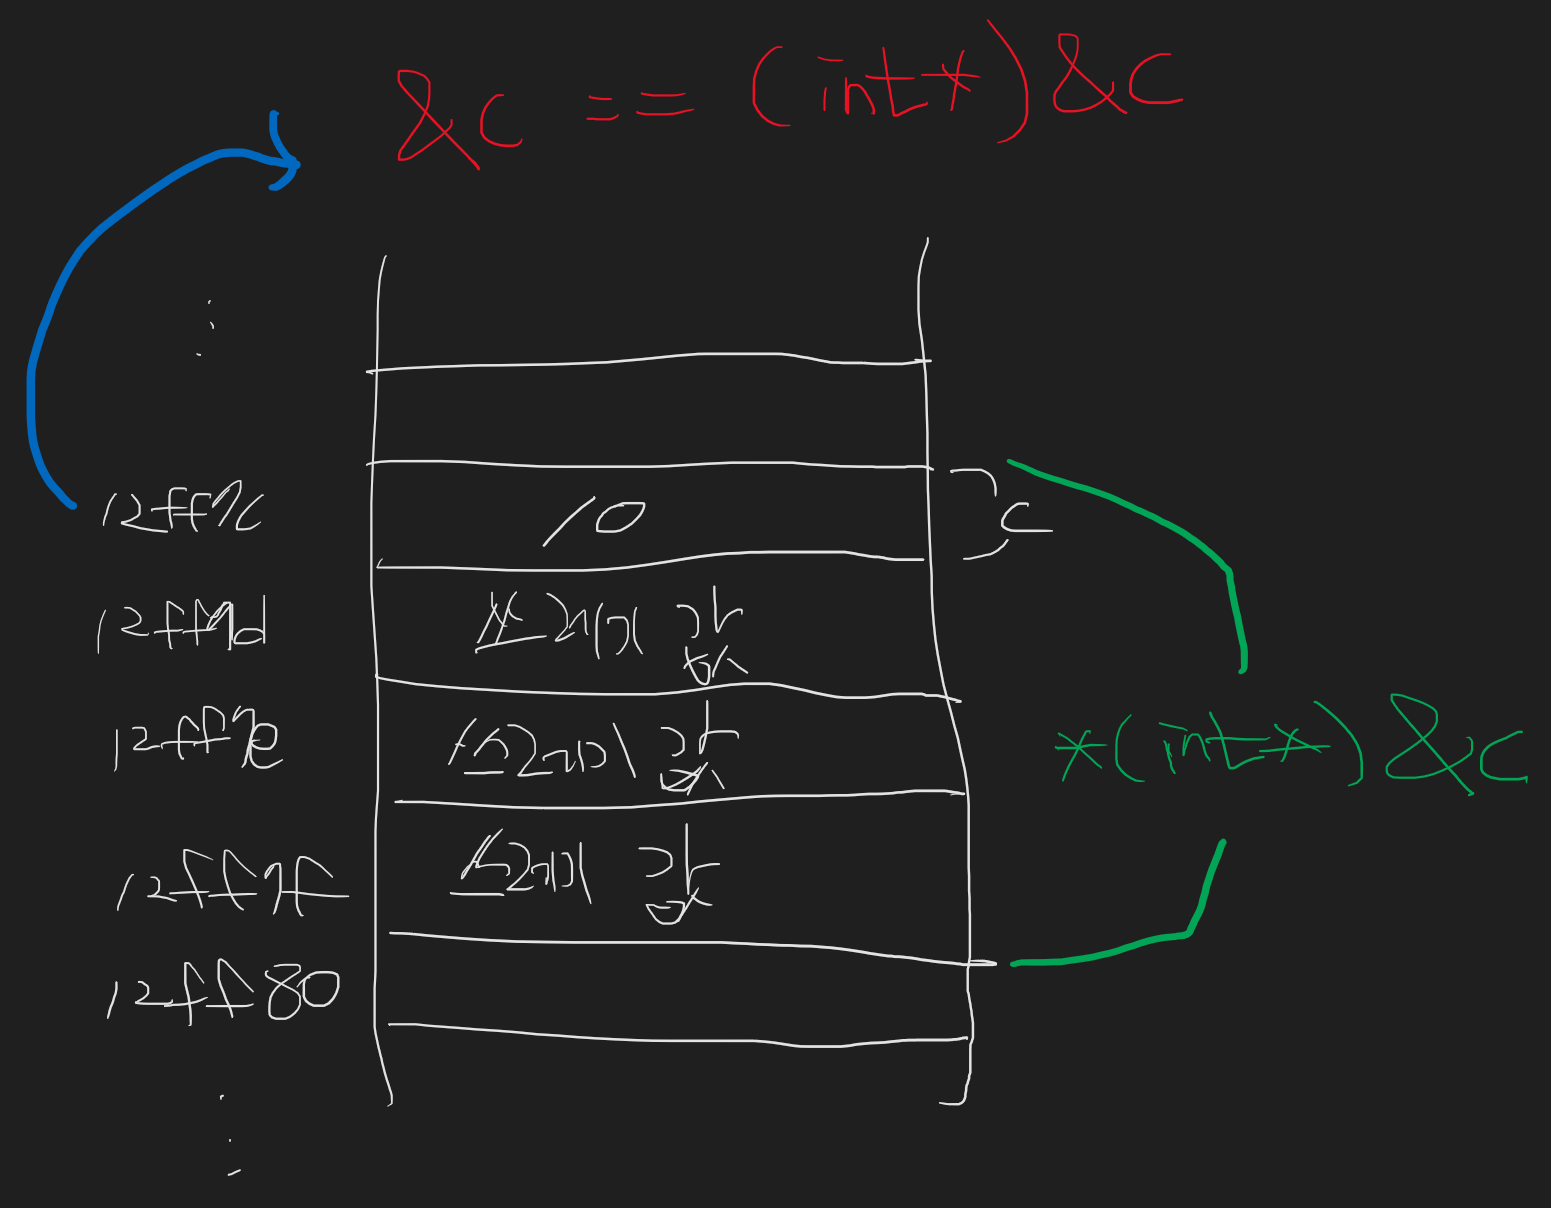 &c == (int*)&c
12ff7c 10 c
12ff7d 쓰레기 값
12ff7e 쓰레기 값
*(int*)&c
12ff7f 쓰레기 값
12ff80